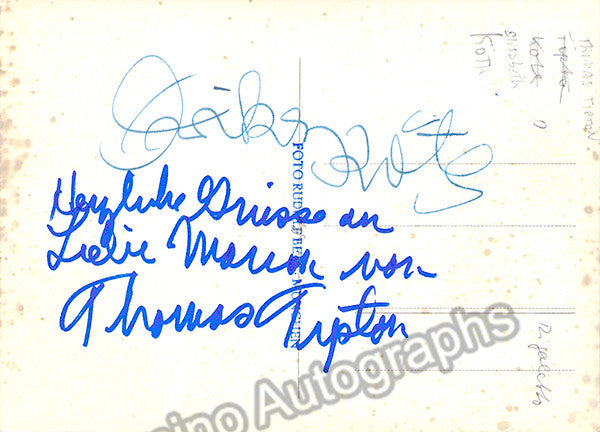 Erika Köth
Herzliche Grüsse an
Liebe Marion von
Thomas Tipton
FOTO RUDOLF BETZ MÜNCHEN
THOMAS TIPTON
Tipton
Köth ?
Elisabeth
KÖTH
Rigoletto
ino Autographs